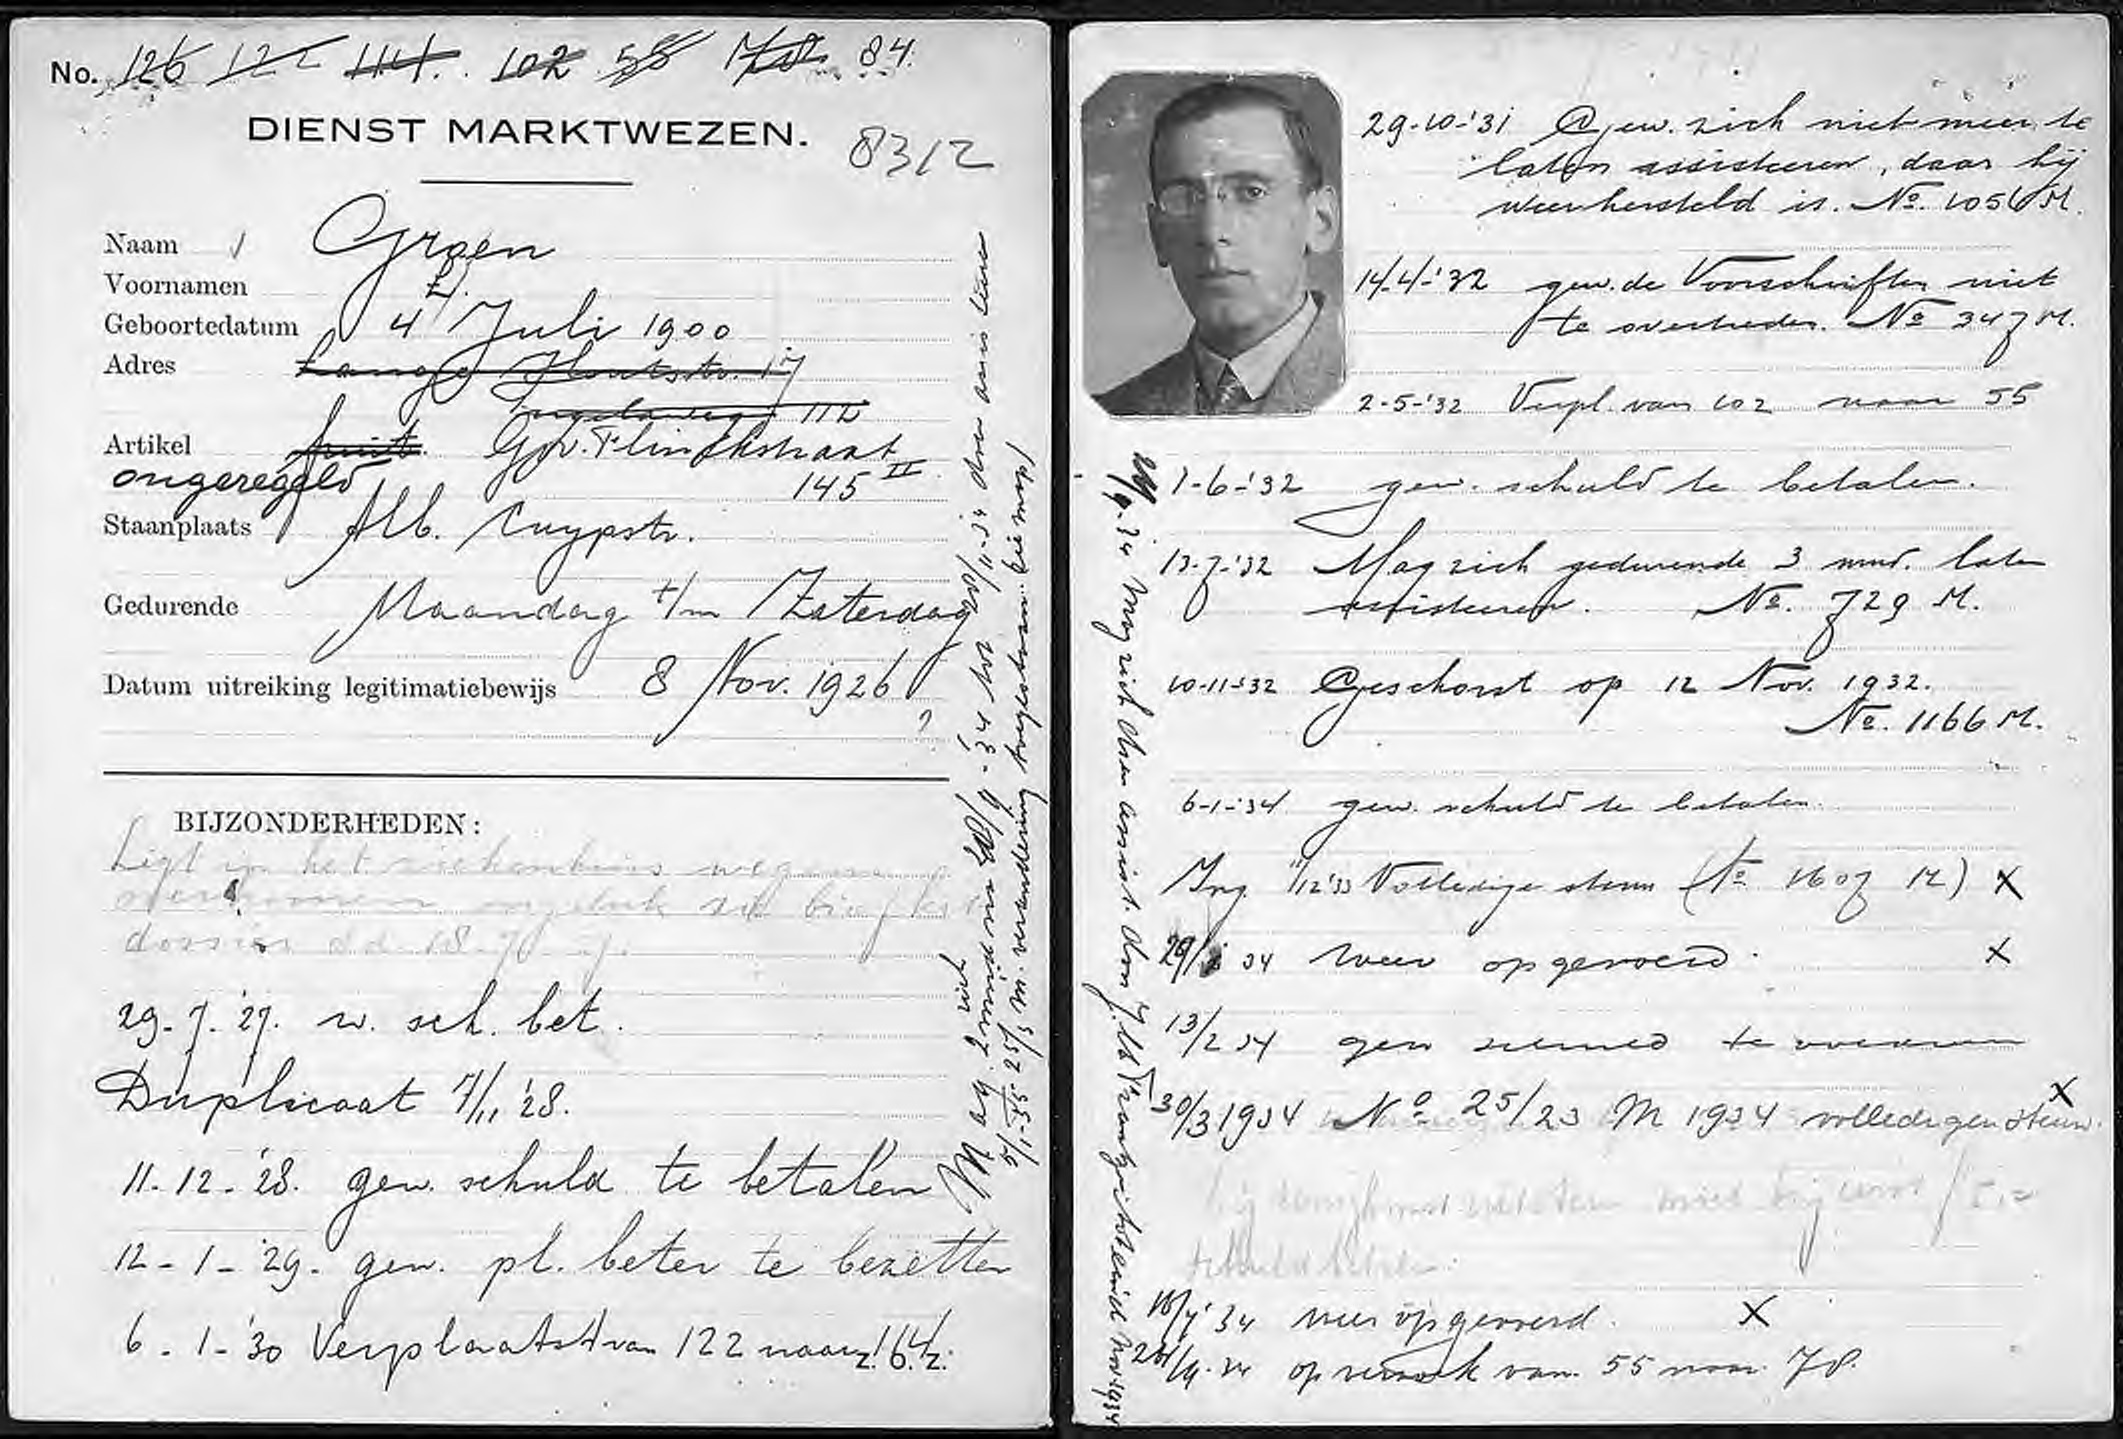 No. 126 122 114. 102 58 84.
DIENST MARKTWEZEN.
8312
Naam Groen
Voornamen
Geboortedatum 4 Juli 1900
Adres Lange Houtstr. 17
112
Artikel fruit. Gov. Flinckstraat
ongeregeld 145 II
Staanplaats Alb. Cuypstr.
Gedurende Maandag t/m Zaterdag
Datum uitreiking legitimatiebewijs 8 Nov. 1926
?
BIJZONDERHEDEN:
Ligt in het ziekenhuis wegens
ongeluk
dossier d.d. 18-7
29-7-'27. w. sch. bet.
Duplicaat 7/11 '28.
11-12-'28. gew. schuld te betalen
12-1-'29. gew. pl. beter te bezetten
6-1-'30 Verplaatst van 122 naar 114
Mag zich 2 maind na 20/9-'34 tot 20/11-34 doen
5/1-35 25/3 M. verandering toegestaan
29-10-'31 Gew. zich niet meer te
laten assisteeren, daar hij
weer hersteld is. No. 1056 M.
14-4-'32 gew. de Voorschriften niet
te overtreden. No 347 M.
2-5-'32 Verpl. van 102 naar 55
1-6-'32 gew. schuld te betalen.
13-7-'32 Mag zich gedurende 3 mnd. laten
assisteeren. No. 729 M.
10-11-'32 Geschorst op 12 Nov. 1932.
No. 1166 M.
6-1-'34 gew. schuld te betalen.
Ing. 1/12'33 Volledige steun (No 1607 M) X
29/ 34 weer opgevoerd. X
13/2 34 gew te
30/3 1934 No 25/23 M 1934 volledigen steun. X
bij terugkomst
schuld betalen.
16/7'34 weer opgevoerd. X
34 op verzoek van 55 naar 78.
34 Mag zich doen assist. door
Nov 1934